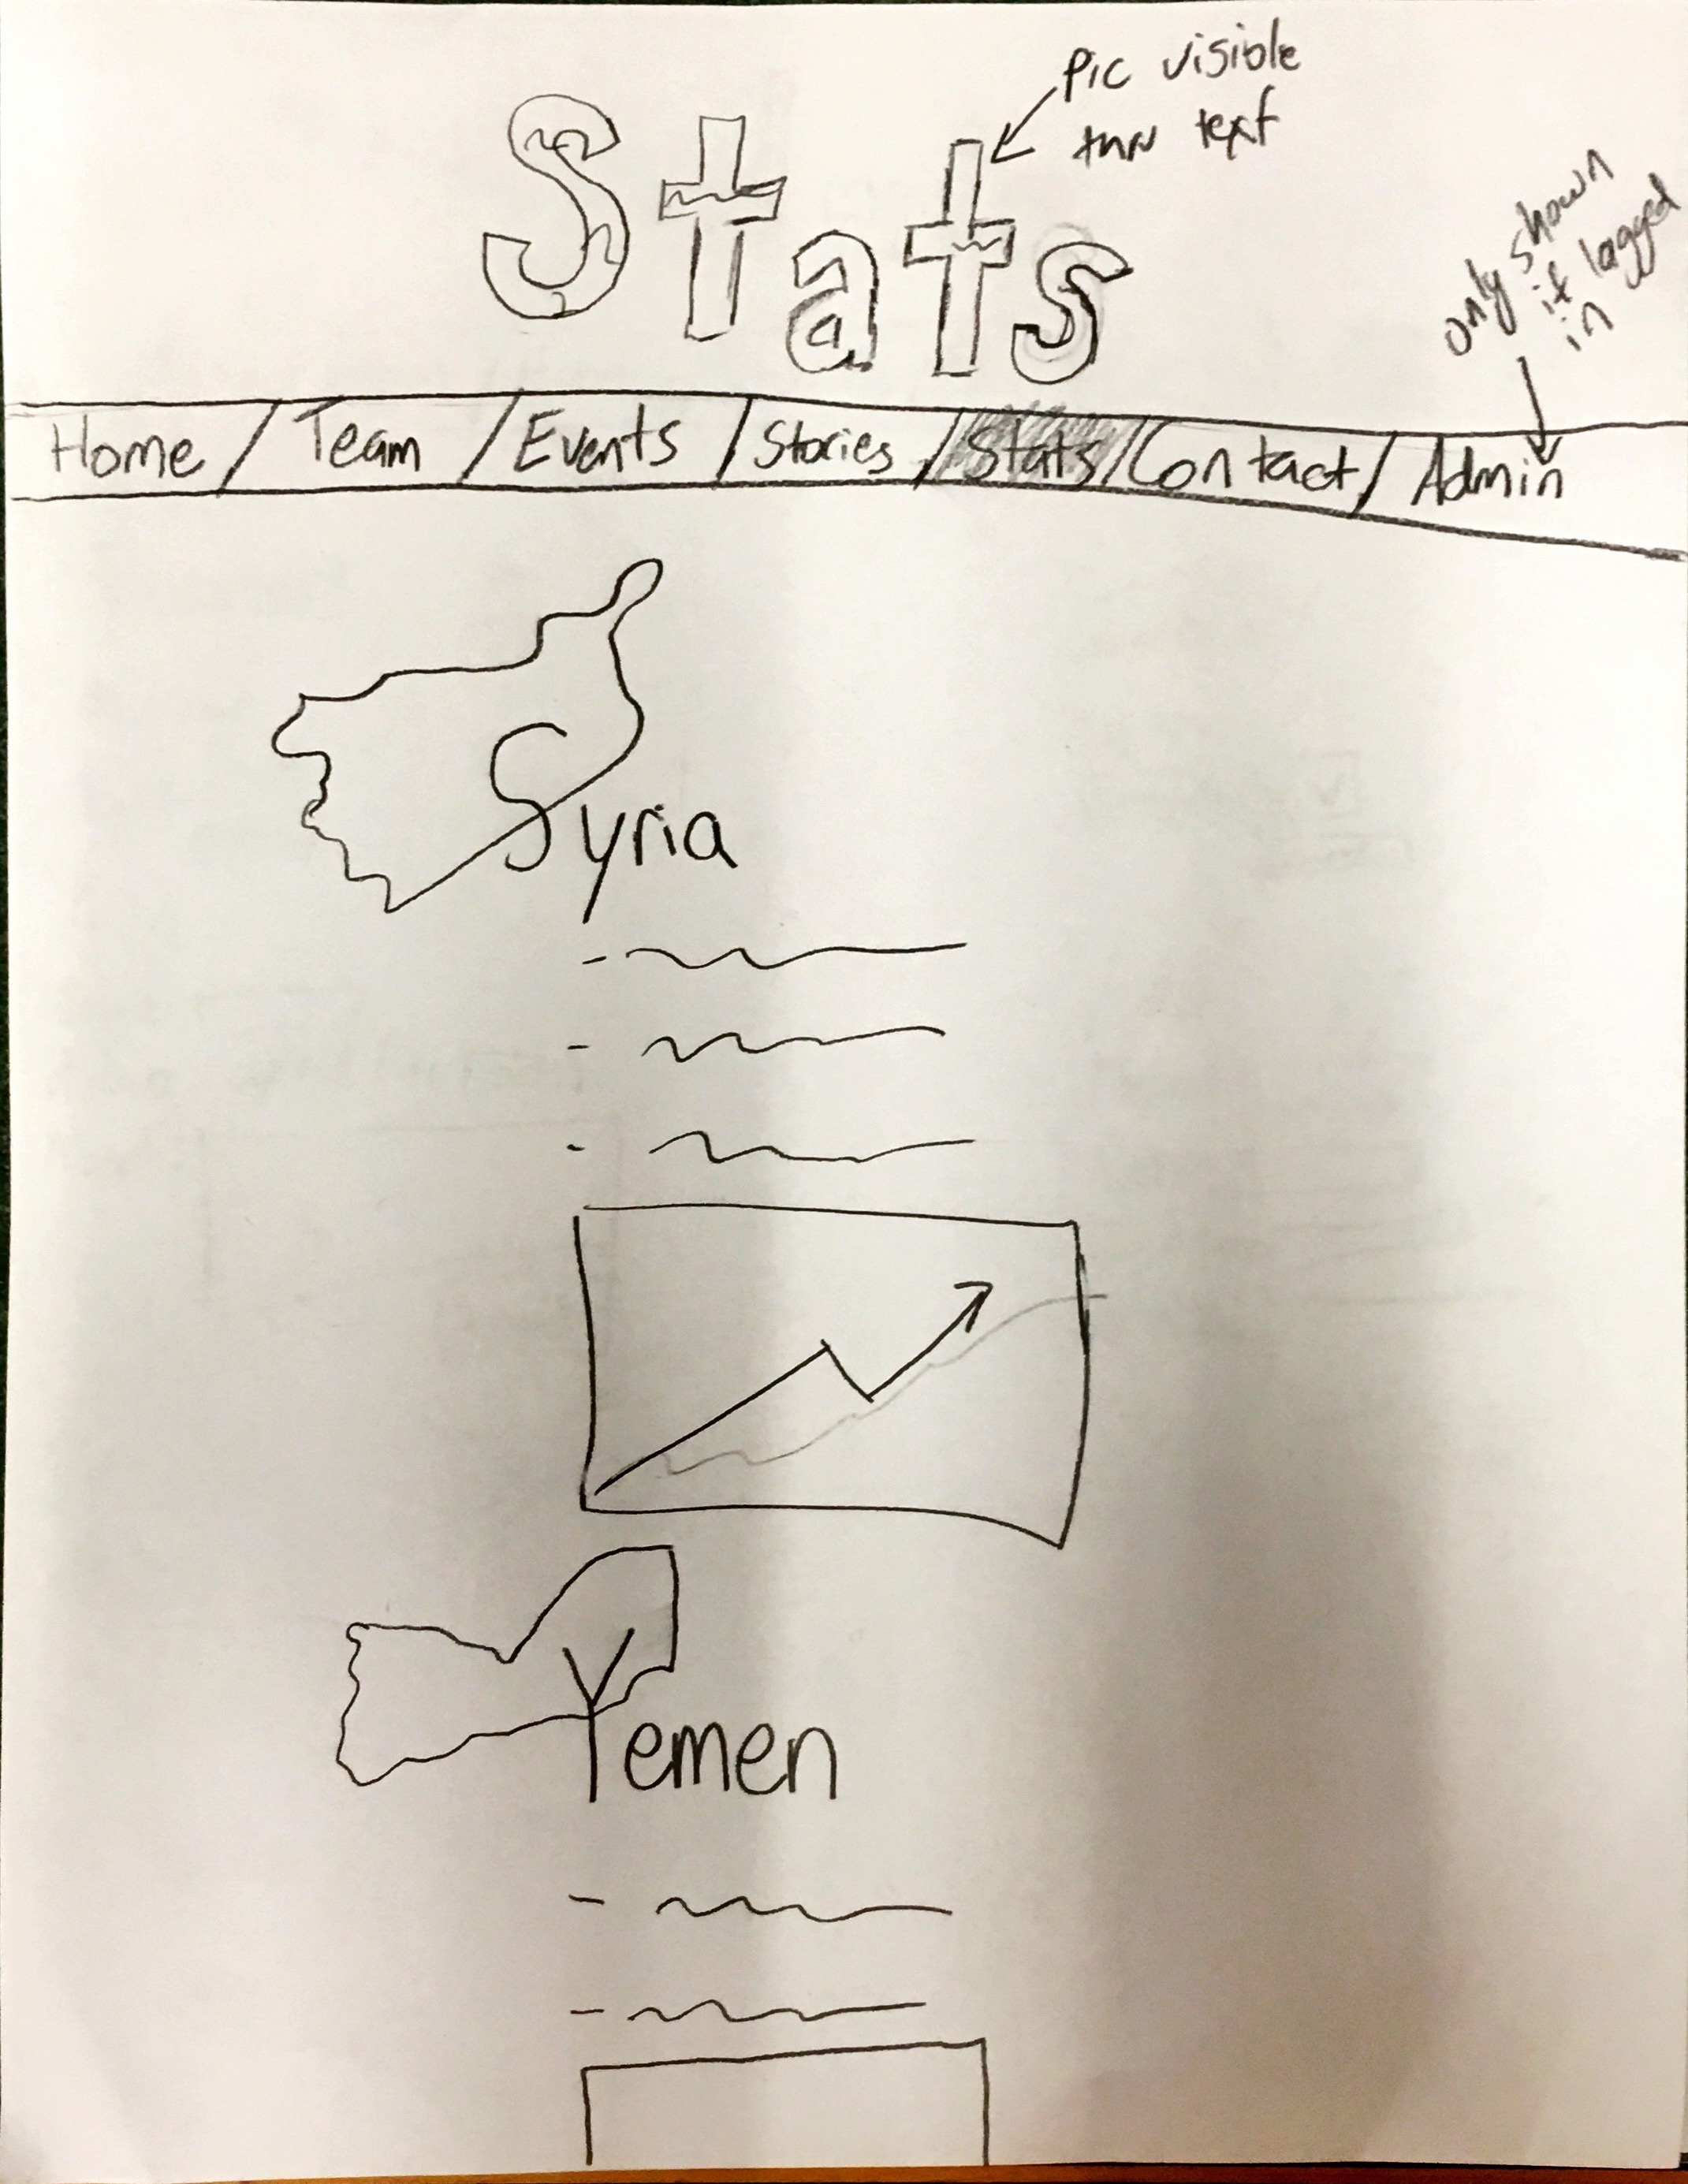 Stats
pic visible
thru text
only shown
if logged
in
Home / Team / Events / Stories / Stats / Contact / Admin
Syria
Yemen